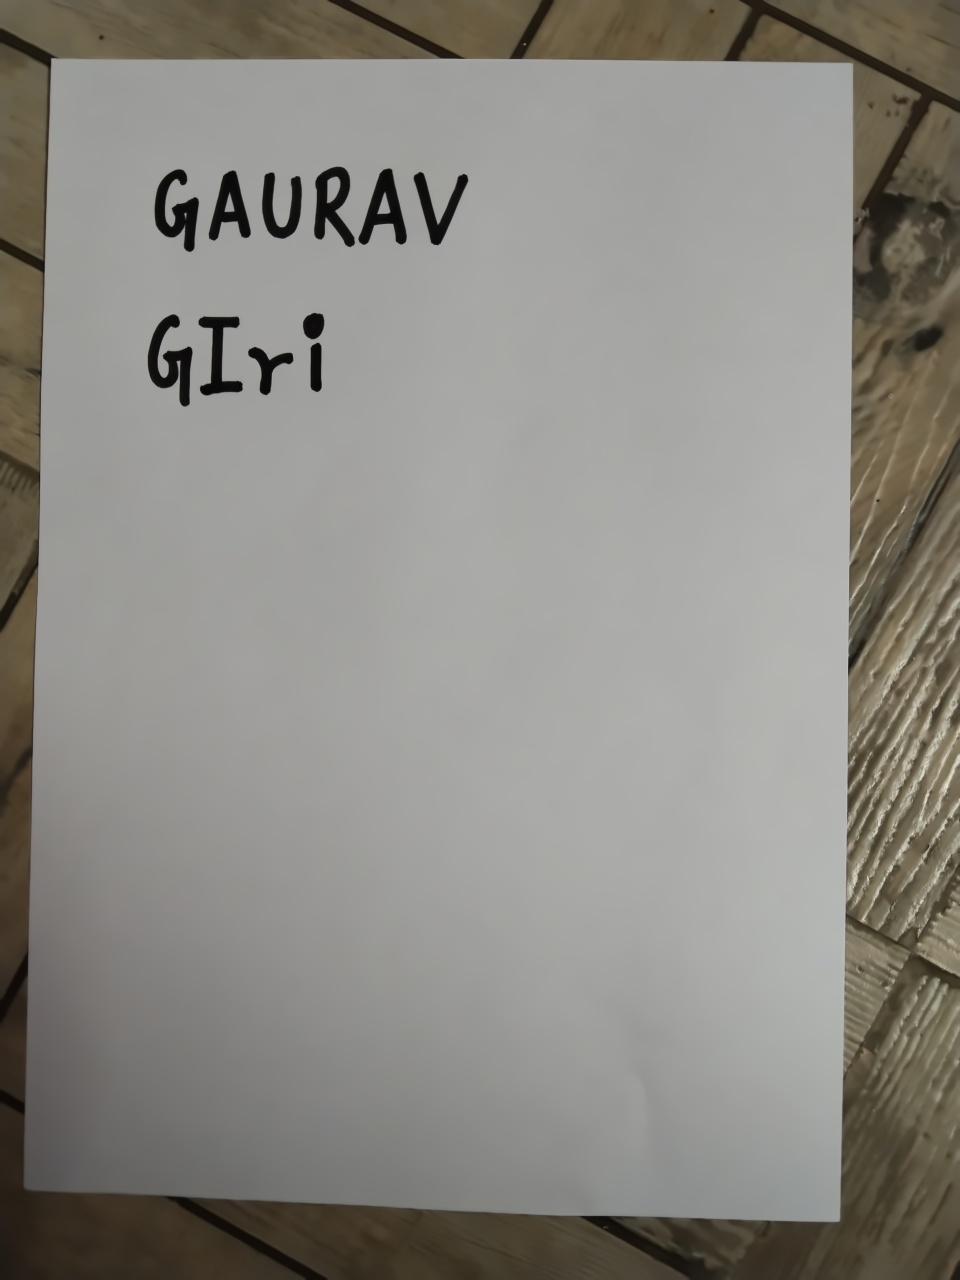 GAURAV
GIri